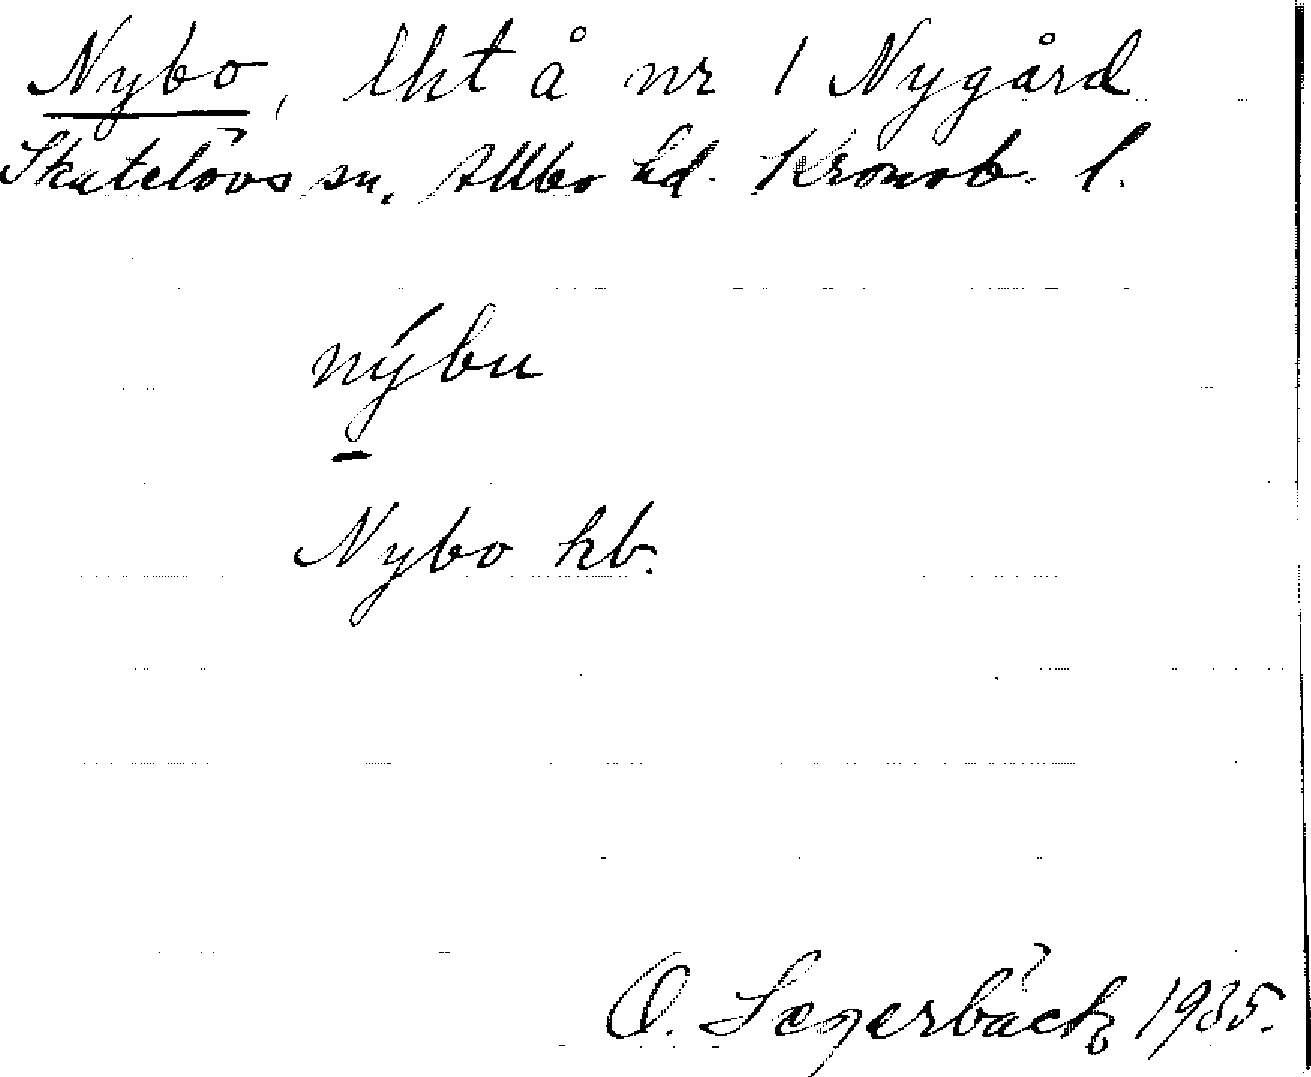 Nybo, lht å nr 1 Nygård
Skatelövs sn, Allbo hd. Kronob. l.
nýbu
Nybo hb.
O. Segerbäck, 1935.